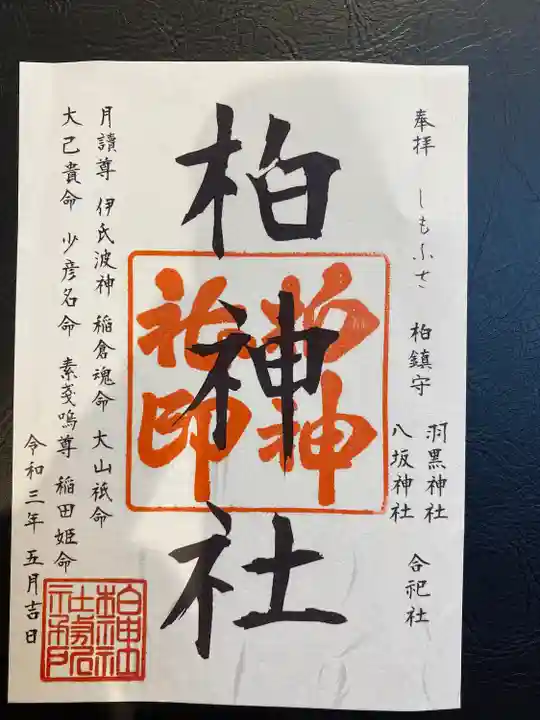 奉拝 しもふさ 柏鎮守 羽黒神社 八坂神社 合祀社
柏神社
柏神社印
月讀尊 伊氏波神 稲倉魂命 大山祇命
大己貴命 少彦名命 素戔嗚尊 稲田姫命
令和三年 五月吉日